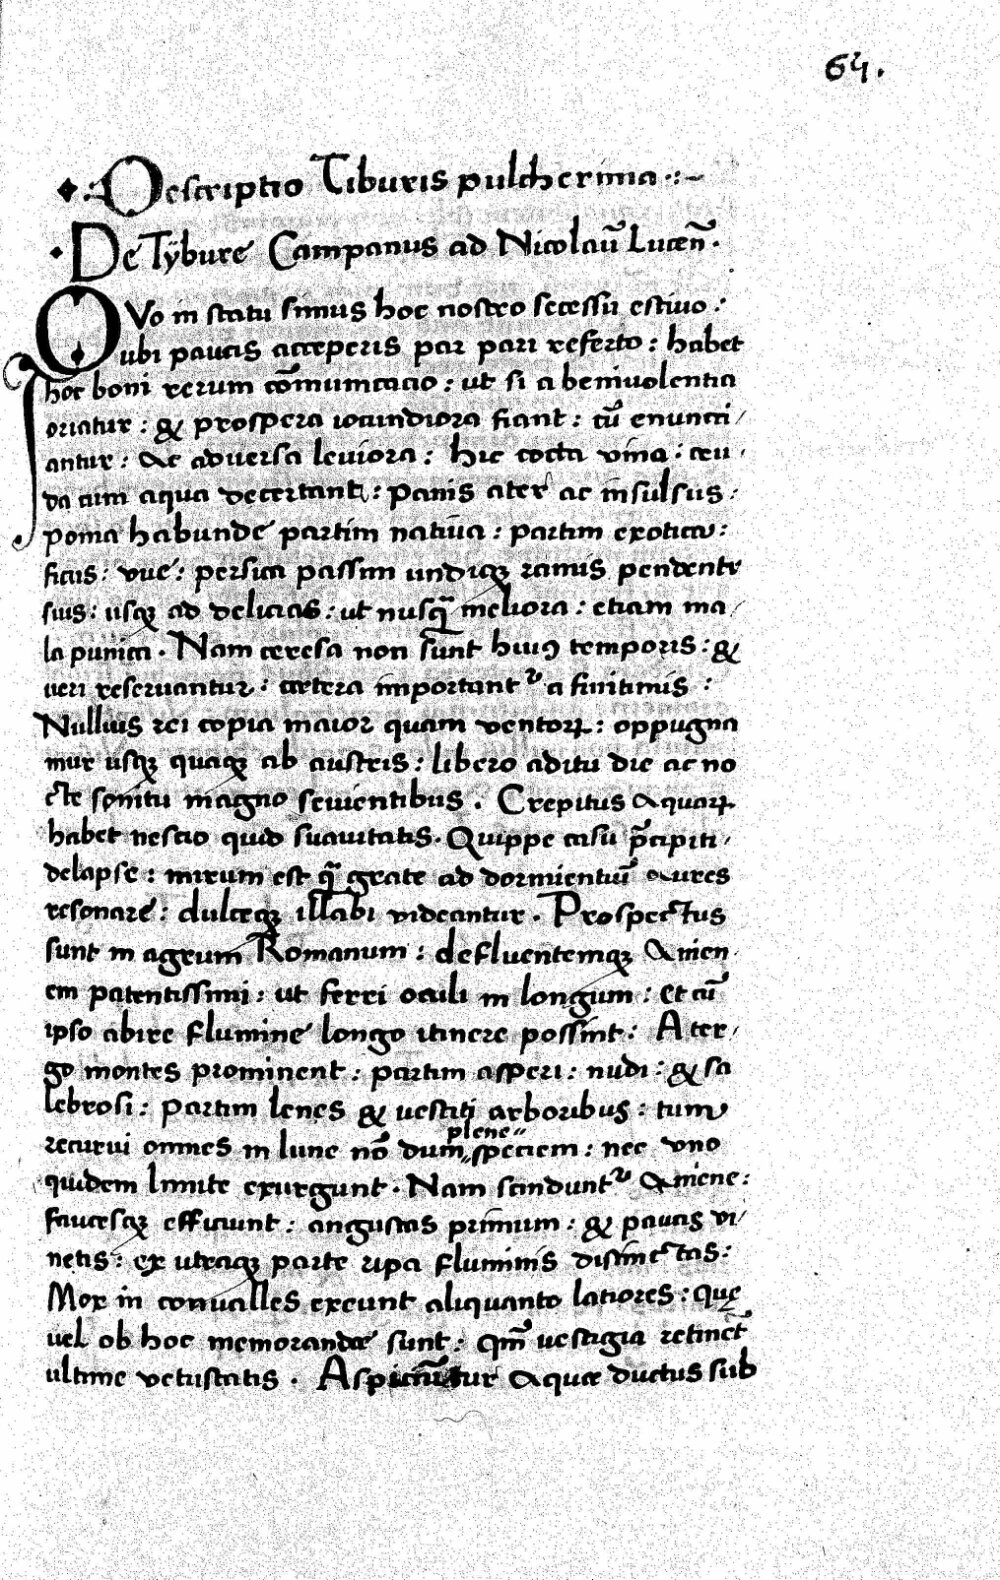 64.
Descriptio Tiburis pulcherrima
De Tÿbure Campanus ad Nicolaū Lucen̄.
QVo in statu simus hoc nostro secessu estiuo:
ubi paucis acceperis par pari referto: habet
hoc boni rerum cōmunicacio: ut si a beniuolentia
oriatur: & prospera iocundiora fiant: cū enuncti/
antur: Ac aduersa leuiora: hic cocta vina: ceu/
da cum aqua decertant: panis ater ac insulsus:
poma habunde partim natiua: partim exotica:
ficus: vue: persica passim undiqꝫ ramis pendente
suis: usqꝫ ad delicias: ut nusqꝫ meliora: etiam ma/
la punica. Nam ceresa non sunt huiꝰ temporis: &
ueri reseruantur: cetera important᷑ a finitimis:
Nullius rei copia maior quam ventorꝝ: oppugna
mur usqꝫ quaqꝫ ab austris: libero aditu die ac no
cte sonitu magno seuientibus. Crepitus Aquarꝝ
habet nescio quid suauitatis. Quippe casu p̄cipiti/
delapse: mirum est q̄ grate ad dormientiū Aures
resonare: dulceqꝫ illabi videantur. Prospectus
sunt in agrum Romanum: defluentemqꝫ Anien/
em patentissimi: ut ferri oculi in longum: Et cū
ipso abire flumine longo itinere possint: A ter/
go montes prominent: partim asperi: nudi: & sa
lebrosi: partim lenes & uestiti arboribus: tum
recurui omnes in lune nō dum plene speciem: nec vno
quidem limite exurgunt. Nam scindunt᷑ Aniene:
faucesqꝫ efficiunt: angustas primum: & paucis vi/
netis: ex utraqꝫ parte ripa fluminis distinctas:
Mox in conualles exeunt aliquanto latiores: quę
uel ob hoc memorandæ sunt: qm̄ uestigia retinēt
ultime vetustatis. Aspiciuntur Aquæ ductus sub